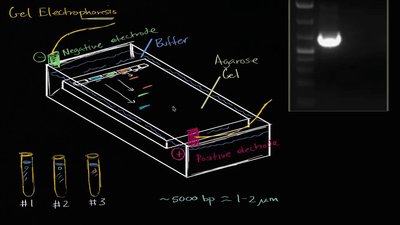 Gel Electrophoresis
− Negative electrode
Buffer
Agarose
Gel
+ Positive electrode
#1 #2 #3
~5000 bp ≈ 1-2 µm